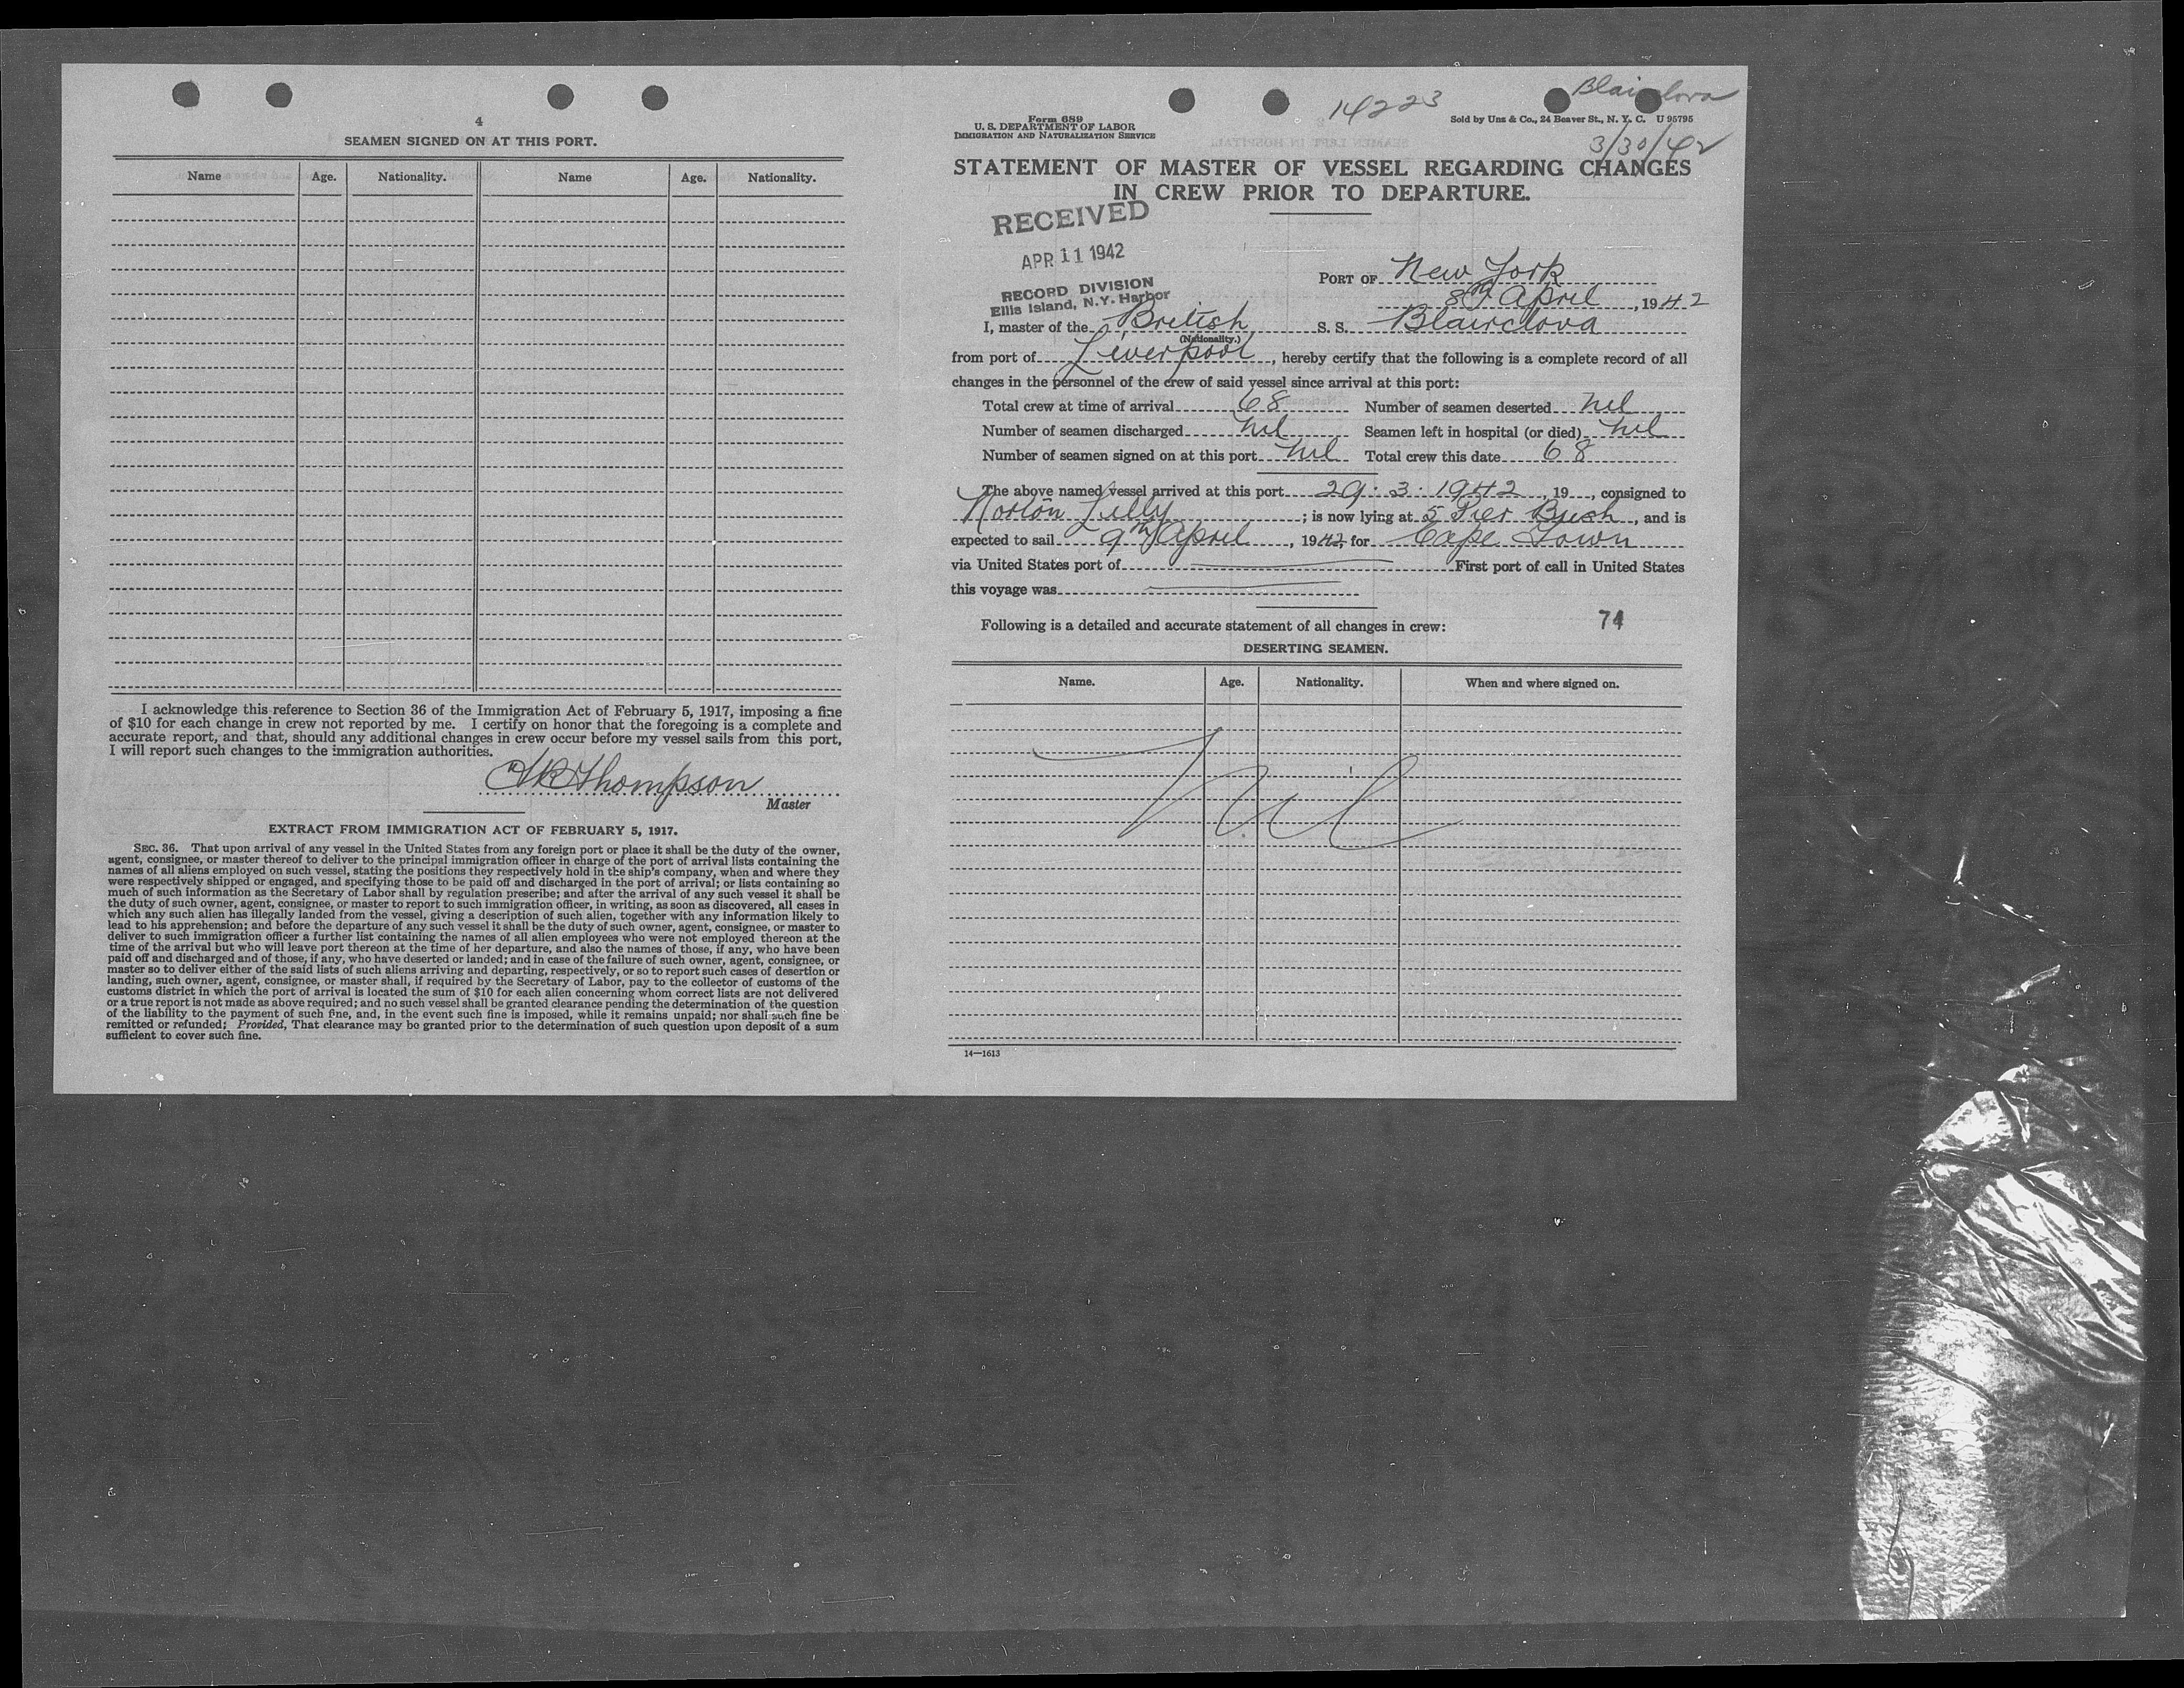 4
SEAMEN SIGNED ON AT THIS PORT.
Name Age. Nationality. Name Age. Nationality.
I acknowledge this reference to Section 36 of the Immigration Act of February 5, 1917, imposing a fine
of $10 for each change in crew not reported by me. I certify on honor that the foregoing is a complete and
accurate report, and that, should any additional changes in crew occur before my vessel sails from this port,
I will report such changes to the immigration authorities.
Thompson
Master
EXTRACT FROM IMMIGRATION ACT OF FEBRUARY 5, 1917.
SEC. 36. That upon arrival of any vessel in the United States from any foreign port or place it shall be the duty of the owner,
agent, consignee, or master thereof to deliver to the principal immigration officer in charge of the port of arrival lists containing the
names of all aliens employed on such vessel, stating the positions they respectively hold in the ship's company, when and where they
were respectively shipped or engaged, and specifying those to be paid off and discharged in the port of arrival; or lists containing so
much of such information as the Secretary of Labor shall by regulation prescribe; and after the arrival of any such vessel it shall be
the duty of such owner, agent, consignee, or master to report to such immigration officer, in writing, as soon as discovered, all cases in
which any such alien has illegally landed from the vessel, giving a description of such alien, together with any information likely to
lead to his apprehension; and before the departure of any such vessel it shall be the duty of such owner, agent, consignee, or master to
deliver to such immigration officer a further list containing the names of all alien employees who were not employed thereon at the
time of the arrival but who will leave port thereon at the time of her departure, and also the names of those, if any, who have been
paid off and discharged and of those, if any, who have deserted or landed; and in case of the failure of such owner, agent, consignee, or
master so to deliver either of the said lists of such aliens arriving and departing, respectively, or so to report such cases of desertion or
landing, such owner, agent, consignee, or master shall, if required by the Secretary of Labor, pay to the collector of customs of the
customs district in which the port of arrival is located the sum of $10 for each alien concerning whom correct lists are not delivered
or a true report is not made as above required; and no such vessel shall be granted clearance pending the determination of the question
of the liability to the payment of such fine, and, in the event such fine is imposed, while it remains unpaid; nor shall such fine be
remitted or refunded; Provided, That clearance may be granted prior to the determination of such question upon deposit of a sum
sufficient to cover such fine.
Blairclova
14223
Form 689
U. S. DEPARTMENT OF LABOR
IMMIGRATION AND NATURALIZATION SERVICE
Sold by Unz & Co., 24 Beaver St., N. Y. C. U 95795
3/30/42
STATEMENT OF MASTER OF VESSEL REGARDING CHANGES
IN CREW PRIOR TO DEPARTURE.
RECEIVED
APR 11 1942
RECORD DIVISION
Ellis Island, N.Y. Harbor
PORT OF New York
8th April, 1942
I, master of the British S. S. Blairclova
(Nationality.)
from port of Liverpool, hereby certify that the following is a complete record of all
changes in the personnel of the crew of said vessel since arrival at this port:
Total crew at time of arrival 68 Number of seamen deserted nil
Number of seamen discharged nil Seamen left in hospital (or died) nil
Number of seamen signed on at this port nil Total crew this date 68
The above named vessel arrived at this port 29.3.1942, 19, consigned to
Norton Lilly; is now lying at 5 Pier Bush, and is
expected to sail 9th April, 1942, for Cape Town
via United States port of First port of call in United States
this voyage was
Following is a detailed and accurate statement of all changes in crew: 74
DESERTING SEAMEN.
Name. Age. Nationality. When and where signed on.
Nil
14—1613